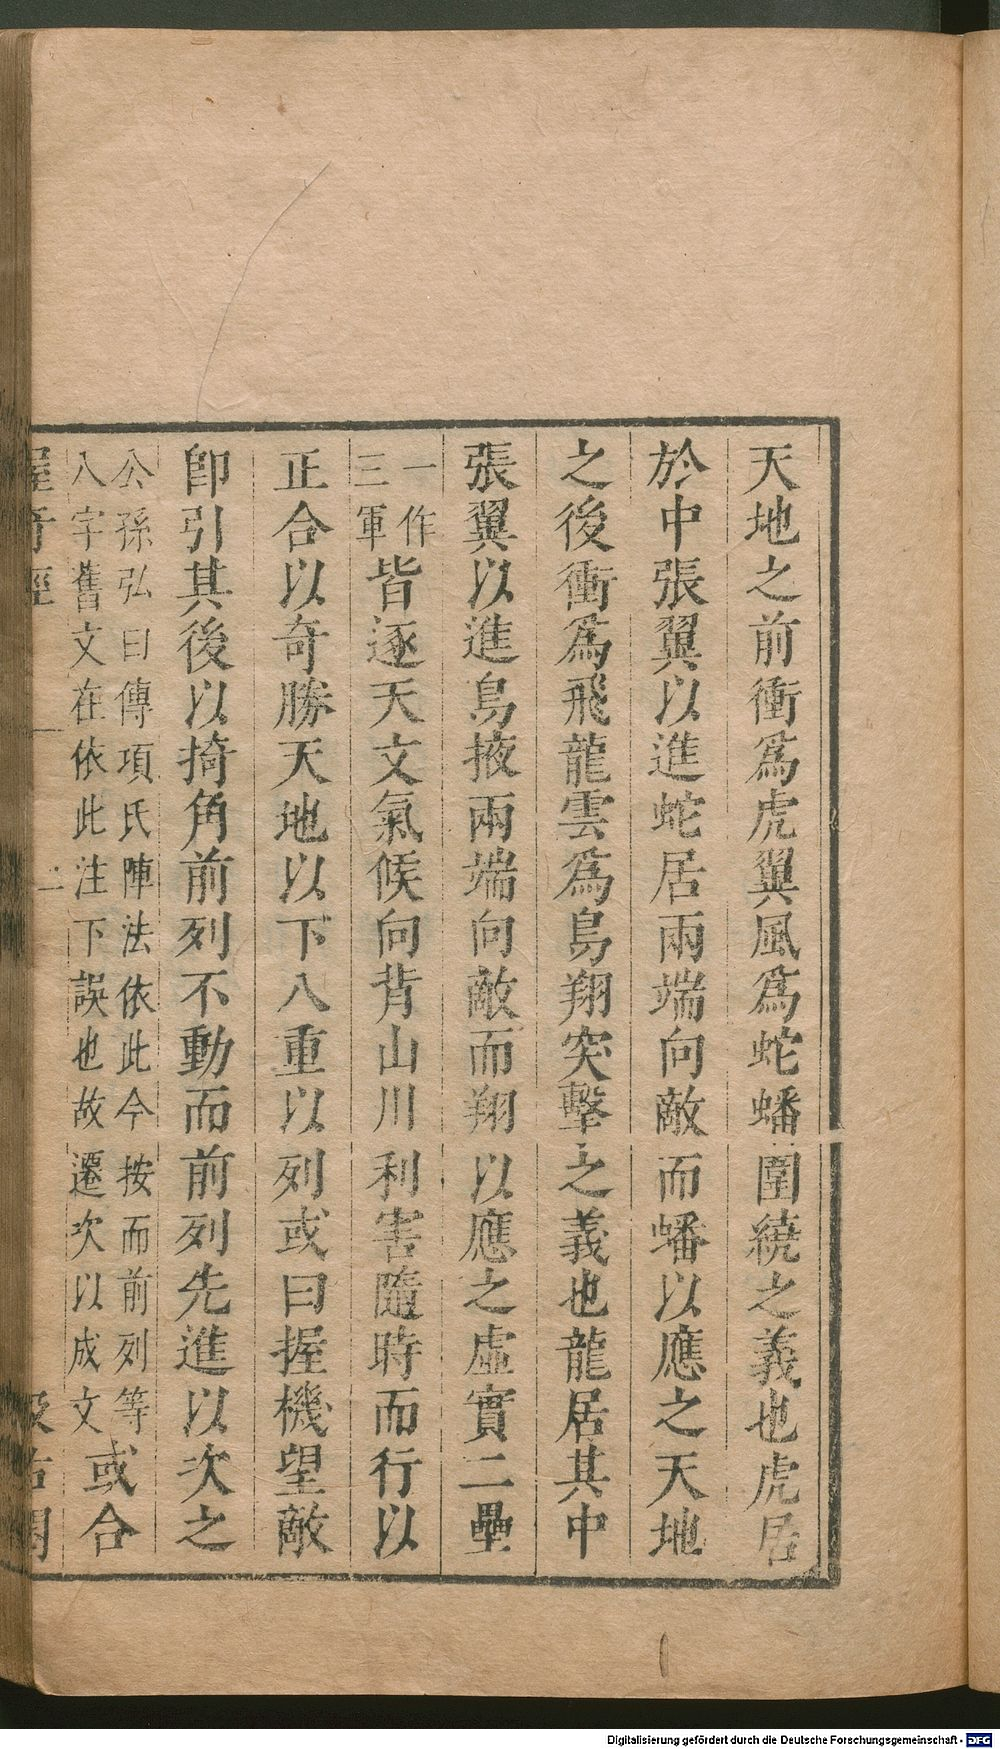 天地之前衝爲虎翼風爲蛇蟠圍繞之義也虎居
於中張翼以進蛇居兩端向敵而蟠以應之天地
之後衝爲飛龍雲爲鳥翔突擊之義也龍居其中
張翼以進鳥掖兩端向敵而翔以應之虛實二壘
一作
三軍
皆逐天文氣候向背山川利害隨時而行以
正合以奇勝天地以下八重以列或曰握機望敵
卽引其後以掎角前列不動而前列先進以次之
公孫弘曰傳項氏陣法依此今按而前列等
八字舊文在依此注下誤也故遷次以成文
或合
二
Digitalisierung gefördert durch die Deutsche Forschungsgemeinschaft - DFG